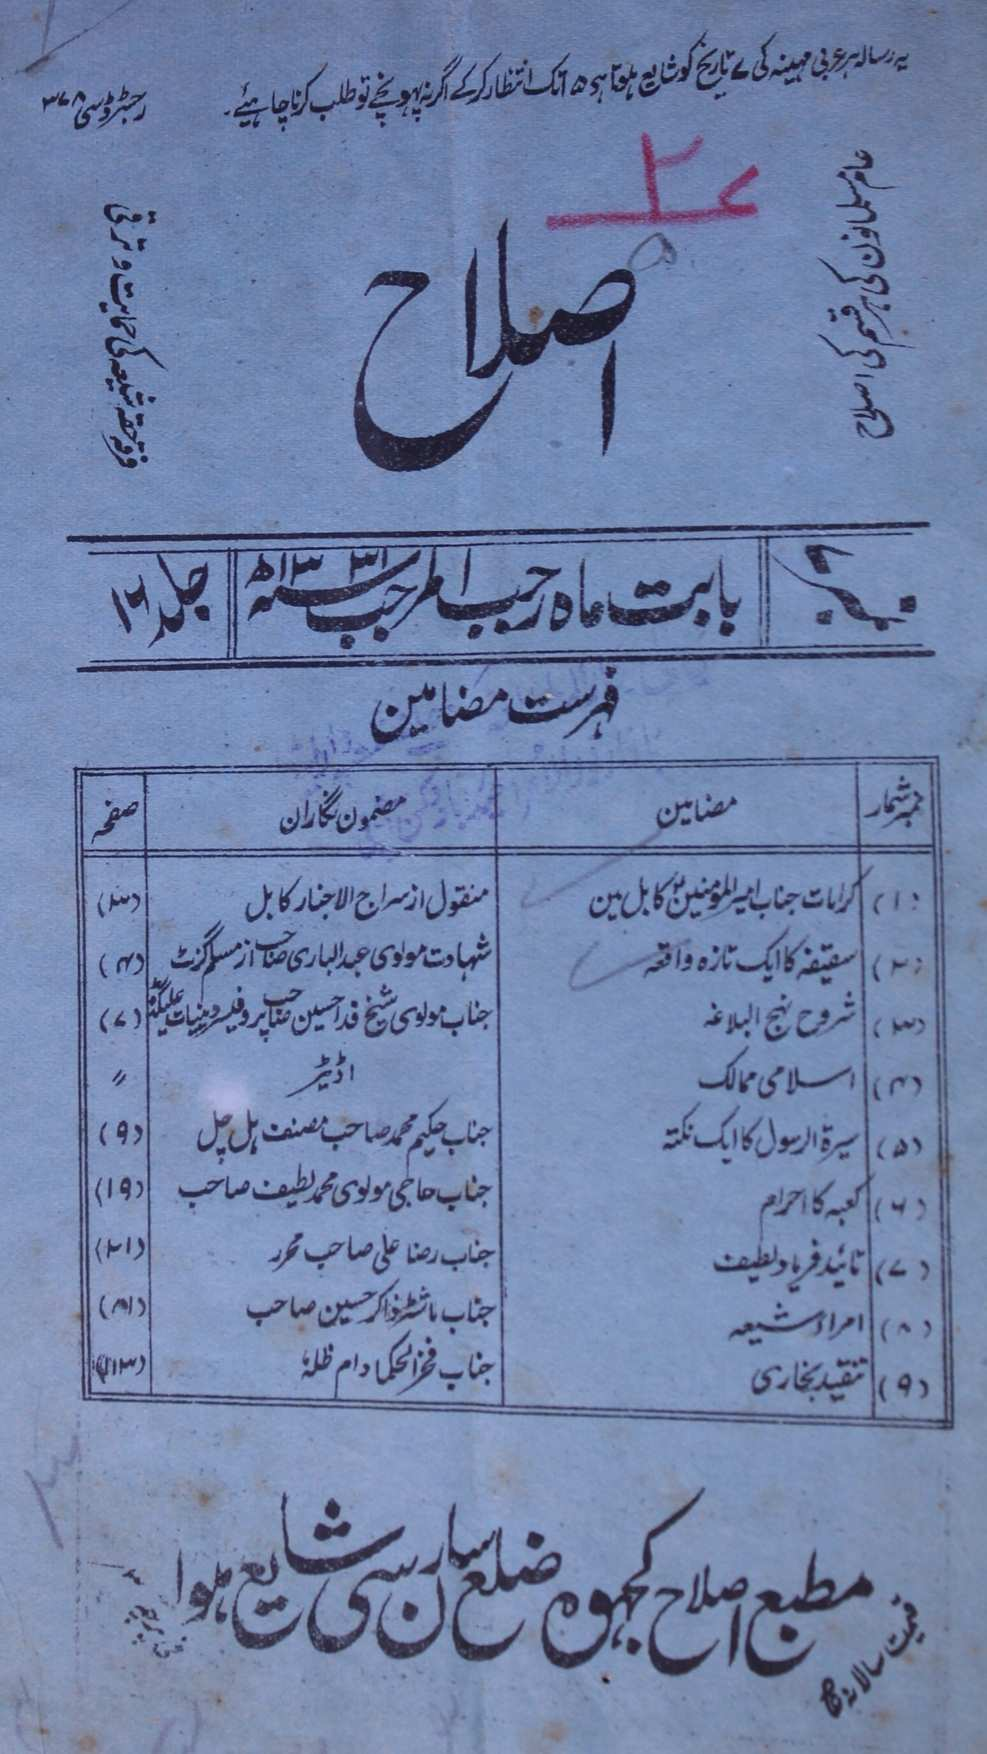 یہ رسالہ ہر عربی مہینہ کی ۷ تاریخ کو شایع ہوتا ہی ۱۵ تک انتظار کرکے اگر نہ پہونچے تو طلب کرنا چاہیئے۔
رجسٹرڈ سی ۳۷۸
۲۷
عام مسلمانون کی ہر قسم کی اصلاح
اصلاح
فرقۂ حقہ شیعہ کی حمایت و ترقی
نمبر ۷
بابت ماہ رجب المرجب سنہ ۱۳۳۱ھ
جلد ۱۶
فہرست مضامین
نمبر شمار مضامین مضمون نگاران صفحہ
(۱) کرامات جناب امیر المومنینؑ کابل مین منقول از سراج الاخبار کابل (۳)
(۲) سقیفہ کا ایک تازہ واقعہ شہادت مولوی عبدالباری صاحب از مسلم گزٹ (۴)
(۳) شروح نہج البلاغہ جناب مولوی شیخ فدا حسین صاحب پروفیسر دینیات علیگڈہ (۷)
(۴) اسلامی ممالک اڈیٹر 〃
(۵) سیرۃ الرسول کا ایک نکتہ جناب حکیم محمد صاحب مصنف ہل چل (۹)
(۶) کعبہ کا احرام جناب حاجی مولوی محمد لطیف صاحب (۱۹)
(۷) تائید فریاد لطیف جناب رضا علی صاحب محرر (۲۱)
(۸) امراء شیعہ جناب ماشٹر ذاکر حسین صاحب
(۹) تنقید بخاری جناب فخر الحکما دام ظلہٗ
مطبع اصلاح کجہوہ ضلع سارن سی شایع ہوا
قیمت سالانہ